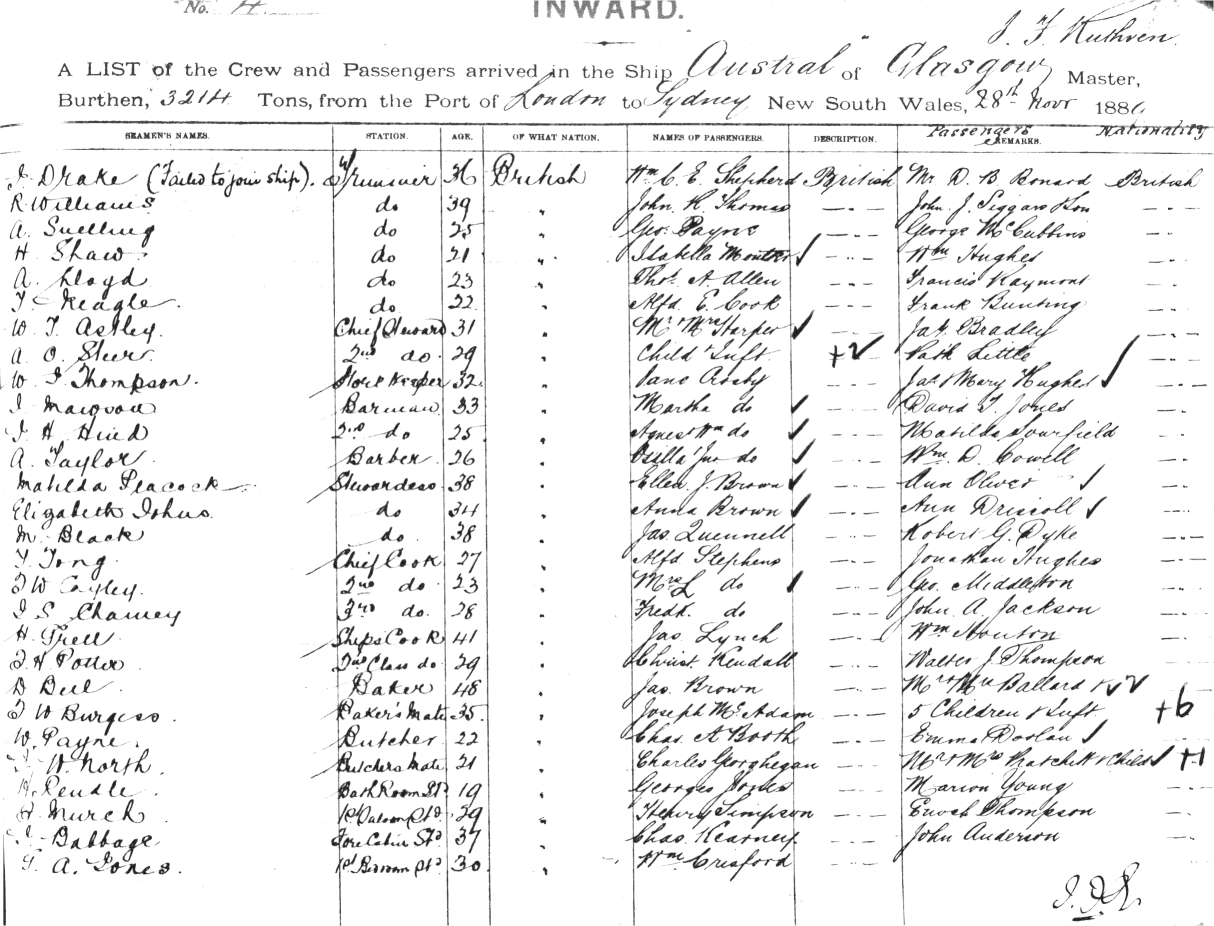 No. 4
INWARD.
J. F. Ruthven
A LIST of the Crew and Passengers arrived in the Ship "Austral" of Glasgow Master,
Burthen, 3214 Tons, from the Port of London to Sydney New South Wales, 28th Novr 1886
SEAMEN'S NAMES. STATION. AGE. OF WHAT NATION. NAMES OF PASSENGERS. DESCRIPTION. Passengers REMARKS. Nationality
J. Drake (Failed to join ship). Trimmer 36 British Wm C. E. Shepherd British Mr D. B. Bonard British
R Williams do 39 " John. H. Thomas -..- John. J. Siggars & Son -..-
A. Snelling do 25 " Geo. Payne -..- George McCubbins -..-
H. Shaw do 21 " Isabella ✓ -..- Wm Hughes -..-
A. Lloyd do 23 " Thos. A. Allen -..- Francis Raymont -..-
T. Keagle do. 22 " Alfd. E. Cook -..- Frank Bunting -..-
W. T. Astley. Chief Steward 31 " Mr & Mrs Harper ✓ -..- Jas. Bradley -..-
A. O. Steer 2nd do. 29 " Child & Inft +2 Patk Little -..-
W. J. Thompson. Store Keeper 32. " Jane Crosby -..- Jas & Mary Hughes ✓ -..-
J. Barman 33 " Martha do ✓ -..- David T. Jones -..-
J. H. Hind 2nd do 25 " Agnes & Wm do ✓ -..- Matilda Sourfield -..-
A. Taylor Barber 26 " do ✓ -..- Wm. D. Cowell -..-
Matilda Peacock Stewardess 38 " Ellen J. Brown ✓ -..- Ann Oliver ✓ -..-
Elizabeth Johns do 34 " Anna Brown ✓ -..- Ann Driscoll ✓ -..-
M. Black do 38 " Jas. Quennell -..- Robert G. Dyke -..-
T. Tong. Chief Cook 27 " Alfd Stephens -..- Jonathan Hughes -..-
F W Cayley. 2nd do. 23 " Mrs L do ✓ -..- Geo. Middleton -..-
J. S. Chamey 3rd do. 28 " Fredk. do -..- John A. Jackson -..-
H. Trell Ships Cook 41 " Jas Lynch -..- Wm -..-
F. H. Potter 2nd Class do 29 " Christ. Kendall -..- Walter J. Thompson -..-
D. Beel Baker 48 " Jas. Brown -..- Mr & Mrs Ballard & ✓ 2
F W Burgess. Baker's Mate 35. " Joseph McAdam -..- 5 Children & Inft +6
W. Payne Butcher 22 " Chas. A Booth -..- Emma Doolan ✓ -..-
W. North. Butchers Mate 21 " Charles Georghegan -..- Mr & Mrs Pratchett & Child ✓ +1
H. Rendle Bath Room Std. 19 " Georges Jones -..- Marion Young -..-
H. Murch 1st Saloon Std 29 " Henry Simpson -..- Enoch Thompson -..-
J. Babbage Fore Cabin Std 37 " Chas. Kearney. -..- John Anderson -..-
T. A. Jones. 30 " Wm Crisford -..-
J. F. R.